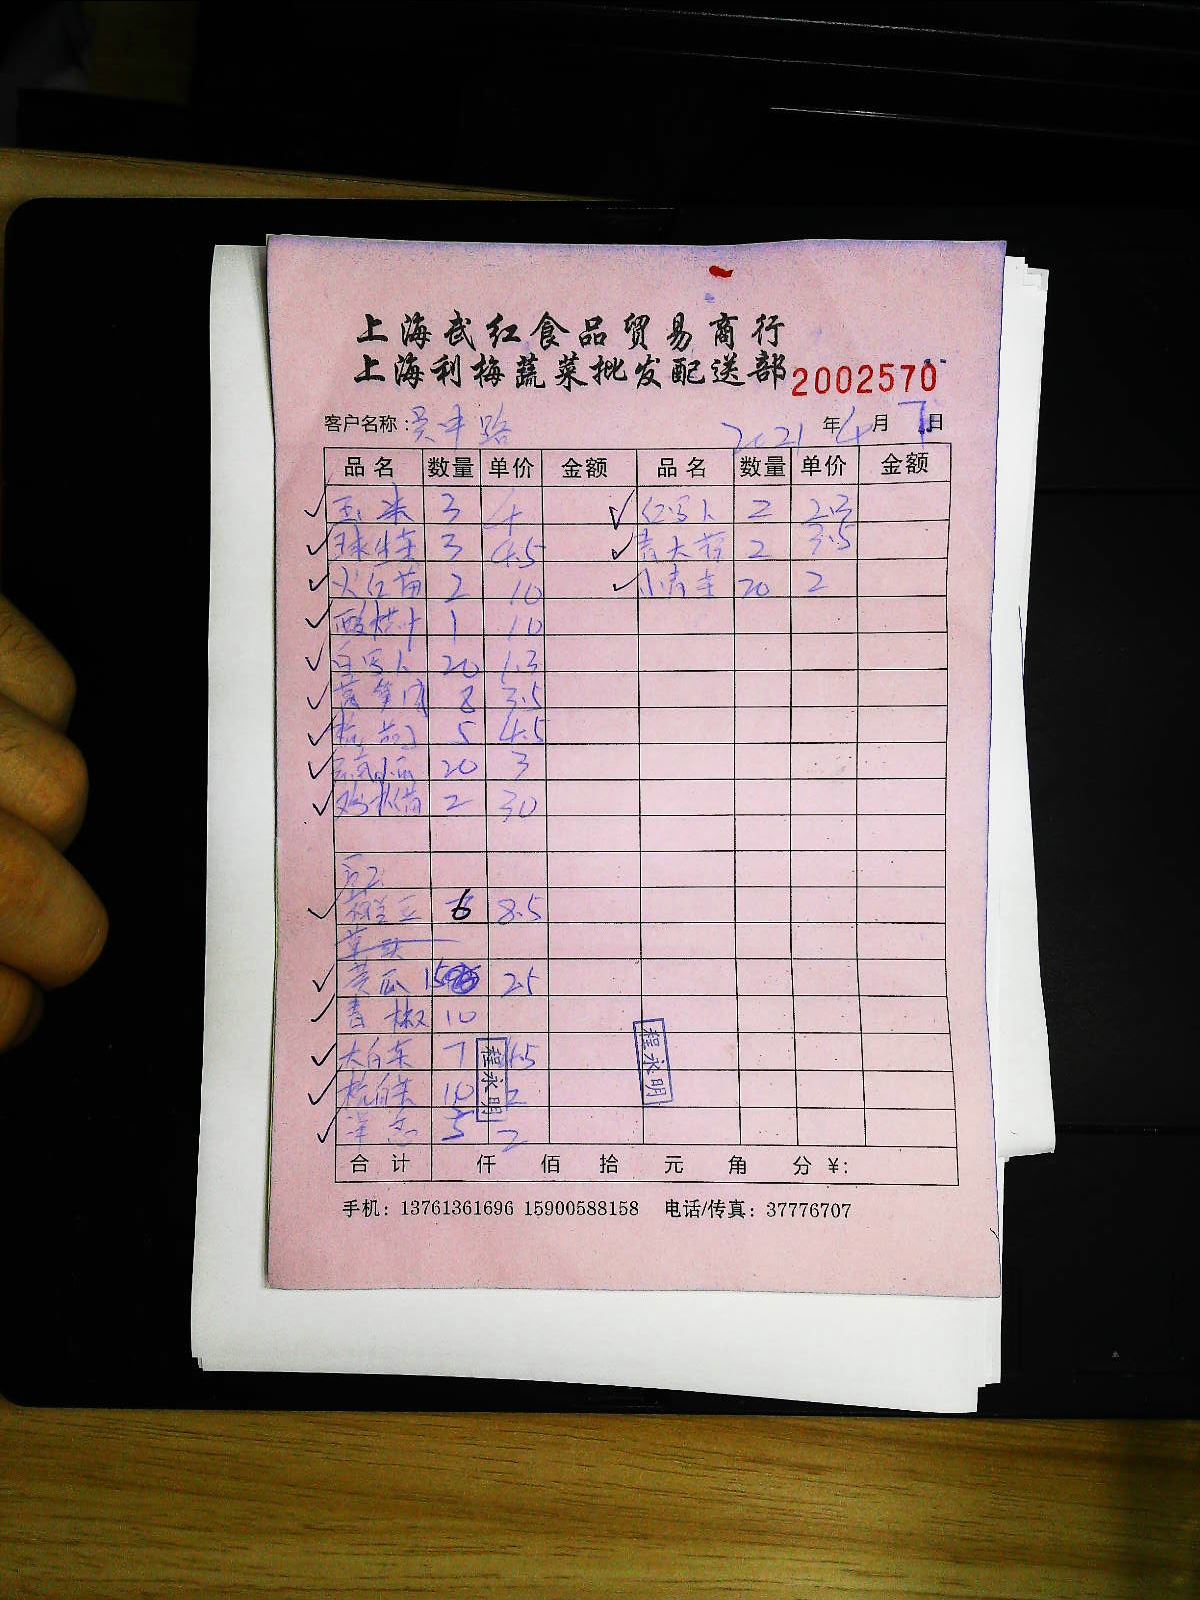 上海武红食品贸易商行
上海利梅蔬菜批发配送部 2002570
客户名称：吴中路 2021 年 4 月 7 日
品名 数量 单价 金额 品名 数量 单价 金额
玉米 3 4 红 2 2.3
球生菜 3 4.5 大 2 3.5
火红苗 2 10 小青菜 20 2
1 10
白 20 1.3
莴笋 8 3.5
杭茄 5 4.5
20 3
2 30
豆 6 8.5
黄瓜 15 2.5
青椒 10
大白菜 7 1.5
杭白菜 10 2
洋葱 5 2
程永明
程永明
合计 仟 佰 拾 元 角 分 ¥:
手机：13761361696 15900588158 电话/传真：37776707